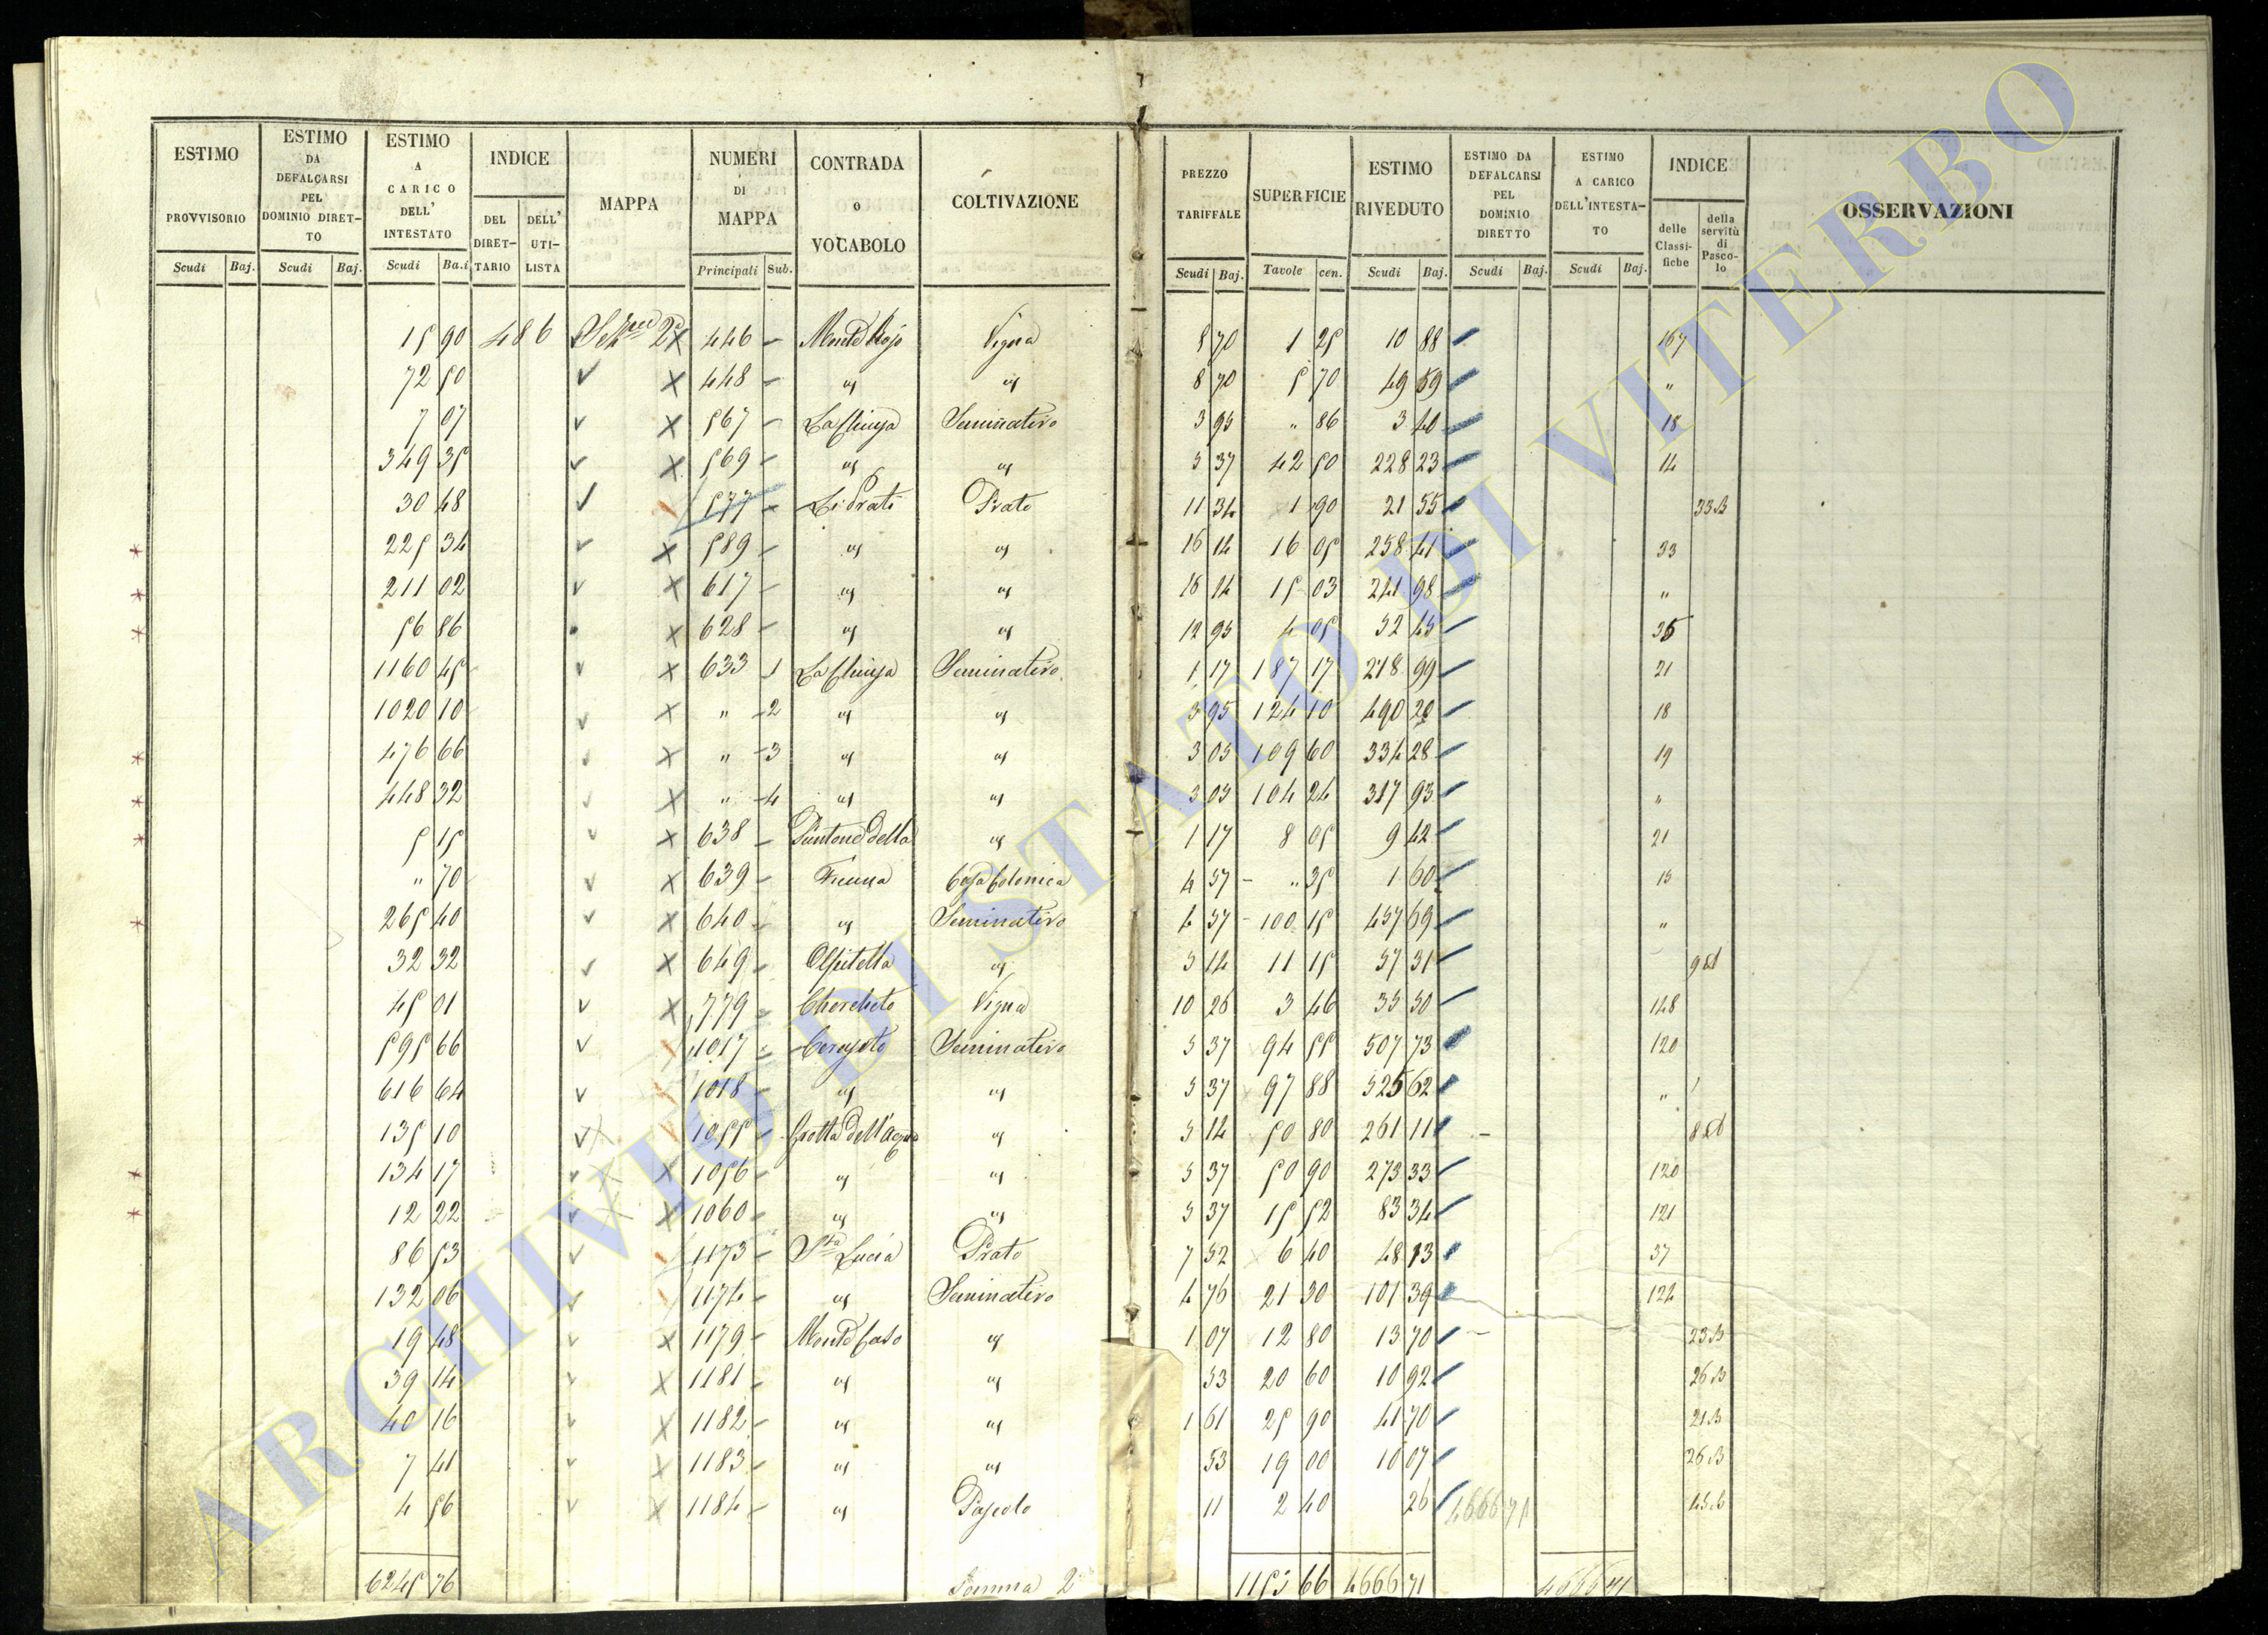 ESTIMO PROVVISORIO Scudi Baj.
ESTIMO DA DEFALCARSI PEL DOMINIO DIRETTO Scudi Baj.
ESTIMO A CARICO DELL' INTESTATO Scudi Ba.i
INDICE DEL DIRETTARIO DELL' UTILISTA
MAPPA
NUMERI DI MAPPA Principali Sub.
CONTRADA O VOCABOLO
COLTIVAZIONE
PREZZO TARIFFALE Scudi Baj.
SUPERFICIE Tavole cen.
ESTIMO RIVEDUTO Scudi Baj.
ESTIMO DA DEFALCARSI PEL DOMINIO DIRETTO Scudi Baj.
ESTIMO A CARICO DELL'INTESTATO Scudi Baj.
INDICE delle Classifiche della servitù di Pascolo
OSSERVAZIONI
15 90 486 446 Vigna 8 70 1 25 10 88 167
72 50 448 " " 8 70 5 70 49 59 "
7 07 567 Seminativo 3 95 " 86 3 40 18
349 35 569 " " 5 37 42 50 228 23 14
30 48 577 Li Prati Prato 11 34 1 90 21 55 33 B
225 34 589 " " 16 14 16 05 258 41 33
211 02 617 " " 16 14 15 03 241 98 "
56 86 628 " " 12 95 4 05 52 45 35
1160 45 633 1 Seminativo 1 17 187 17 218 99 21
1020 10 " 2 " " 3 95 124 10 490 20 18
476 66 " 3 " " 3 05 109 60 334 28 19
448 32 " 4 " " 3 05 104 24 317 93 "
5 15 638 Puntone della " 1 17 8 05 9 42 21
" 70 639 Casa Colonica 4 57 " 35 1 60 15
265 40 640 " Seminativo 4 57 100 15 457 69 "
32 32 649 " 5 14 11 15 57 31 9 A
45 01 779 Chercheto Vigna 10 26 3 46 35 50 148
595 66 1017 Seminativo 5 37 94 55 507 73 120
616 64 1018 " " 5 37 97 88 525 62 "
135 10 1055 Grotta dell'Acqua " 5 14 50 80 261 11 8 A
134 17 1056 " " 5 37 50 90 273 33 120
12 22 1060 " " 5 37 15 52 83 34 121
86 53 1173 Sta Lucia Prato 7 52 6 40 48 13 37
132 06 1174 " Seminativo 4 76 21 30 101 39 124
19 48 1179 " 1 07 12 80 13 70 23 B
39 14 1181 " " 53 20 60 10 92 26 B
40 16 1182 " " 1 61 25 90 41 70 21 B
7 41 1183 " " 53 19 00 10 07 26 B
4 56 1184 " Pascolo 11 2 40 26 4666 71
6245 76 Somma 2 1153 66 4666 71 4666 71
ARCHIVIO DI STATO DI VITERBO